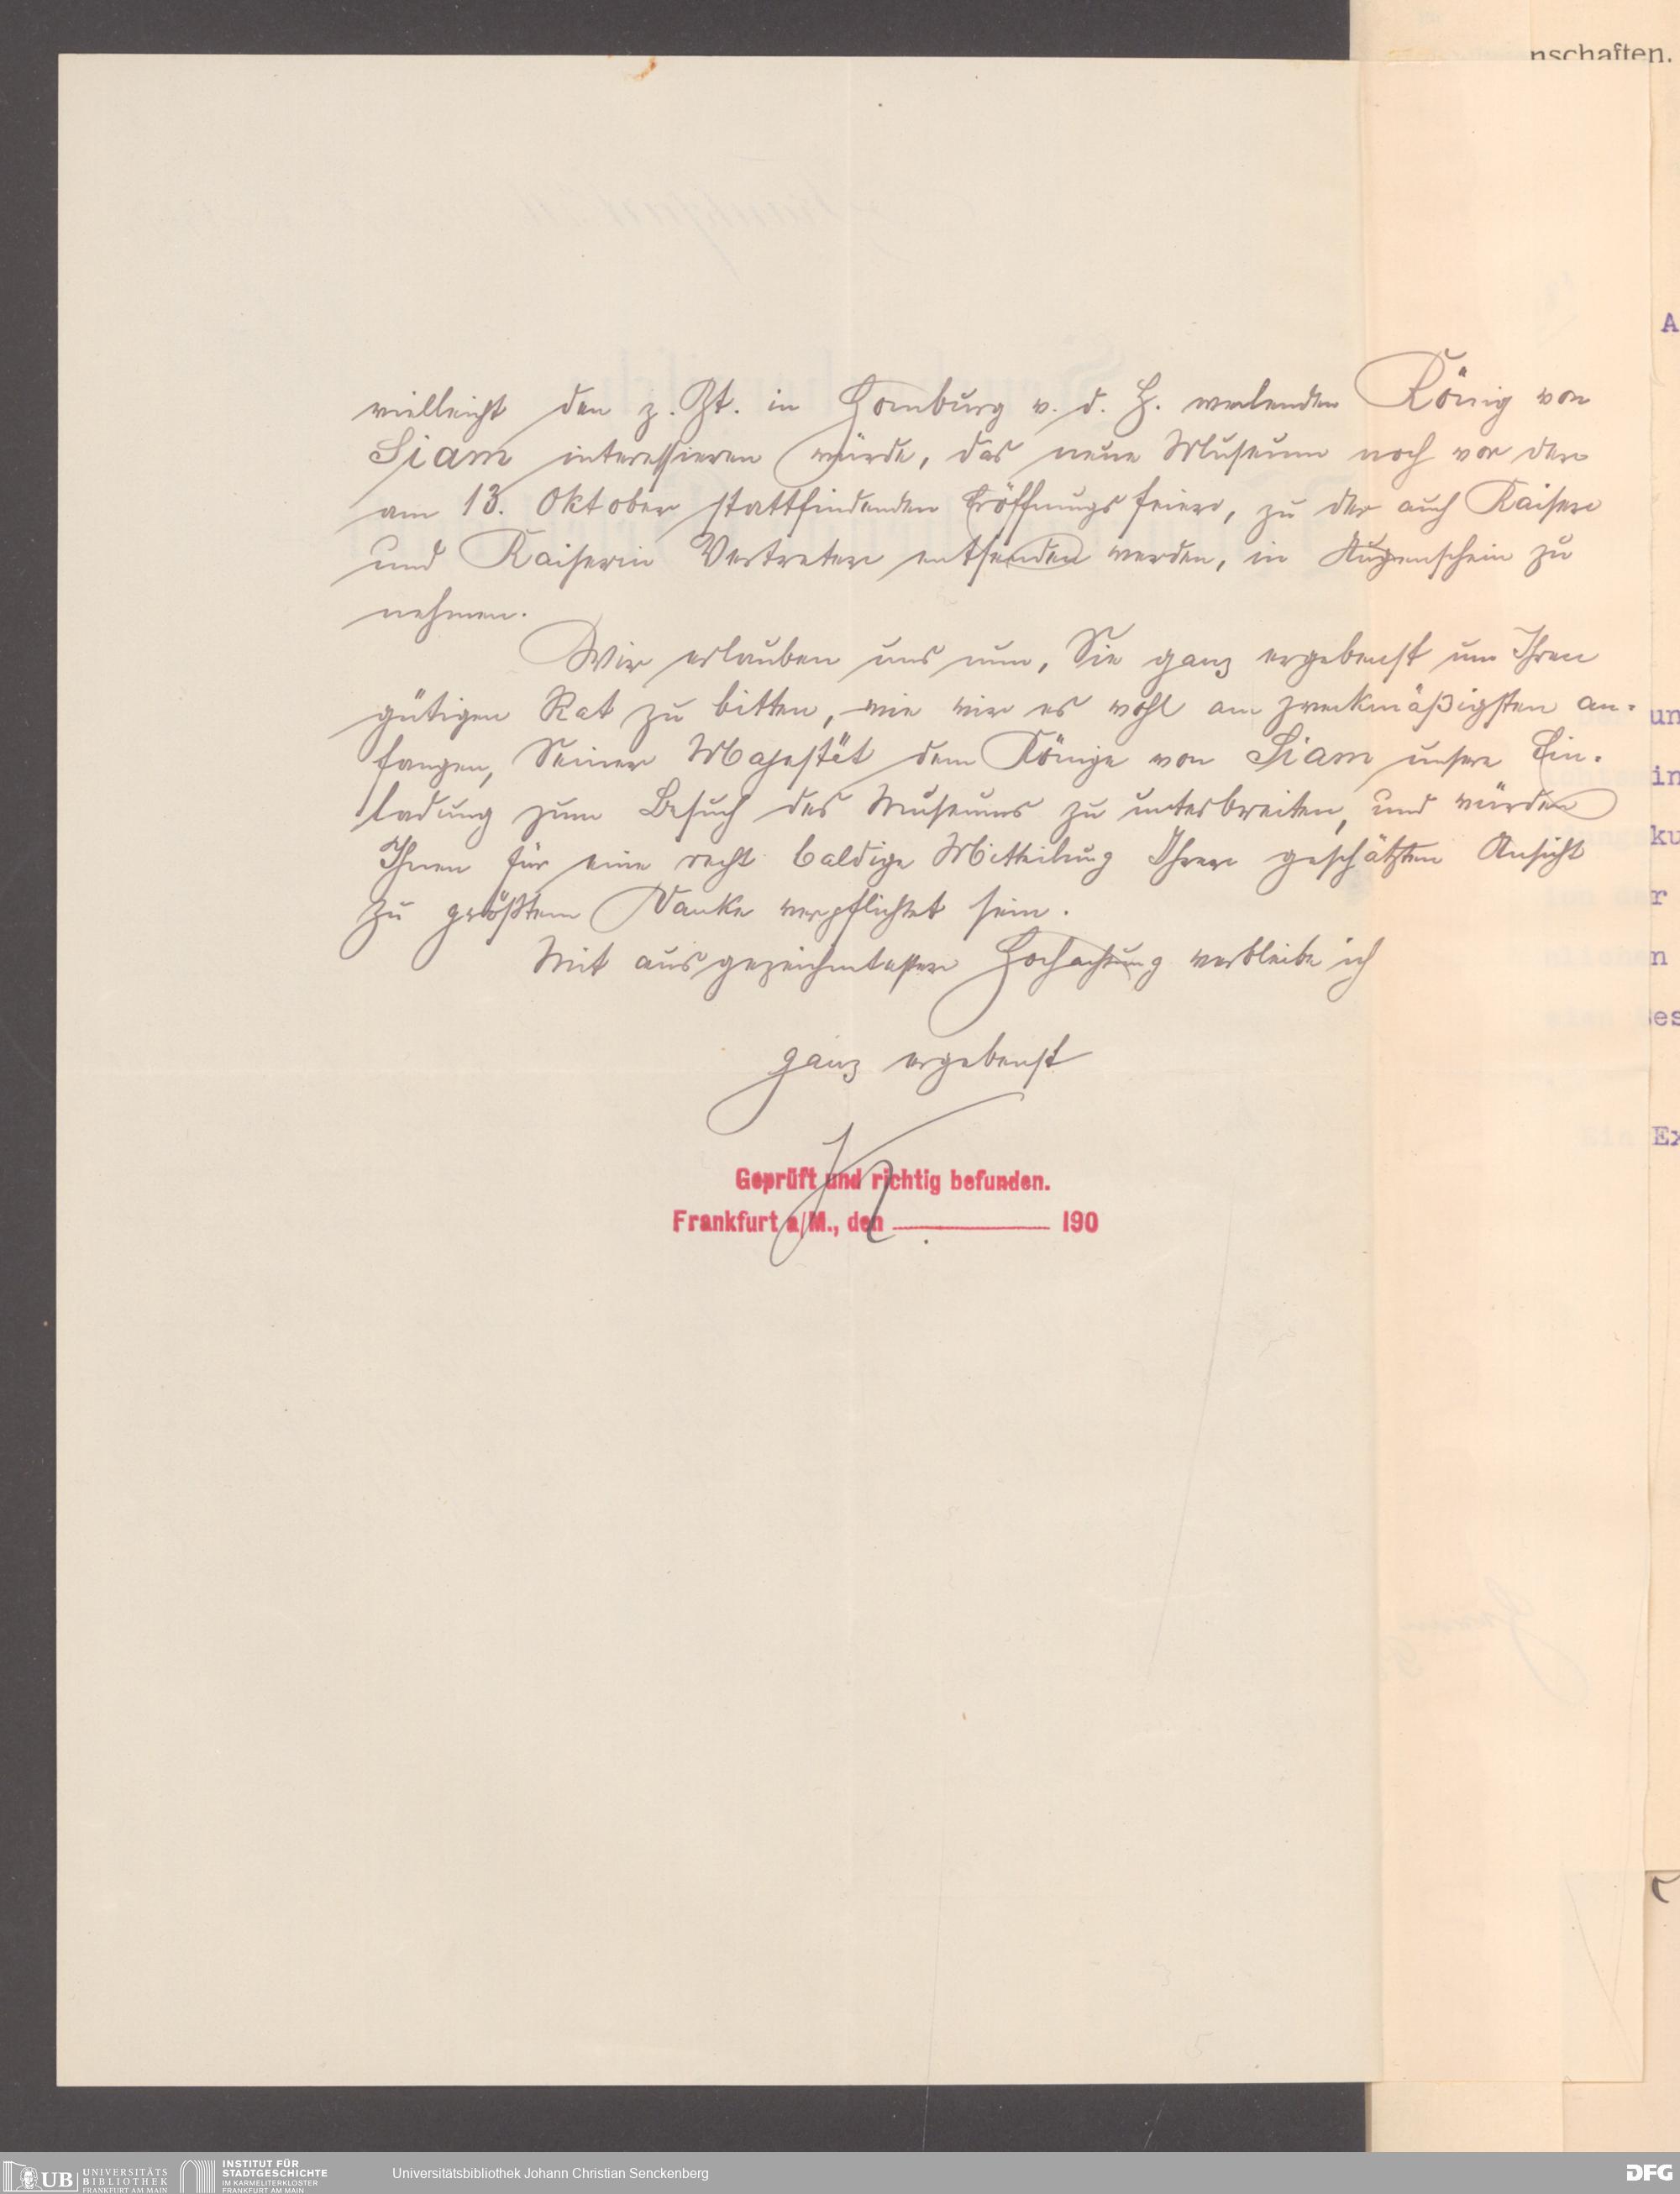 nschaften.
vielleicht den z. Zt. in Homburg v. d. H. weilenden König von
Siam interessieren würde, das neue Museum noch vor der
am 13. Oktober stattfindenden Eröffnungsfeier, zu der auch Kaiser
und Kaiserin Vertreter entsenden werden, in Augenschein zu
nehmen.
Wir erlauben uns nun, Sie ganz ergebenst um Ihren
gütigen Rat zu bitten, wie wir es wohl am zweckmäßigsten an-
fangen, Seiner Majestät dem Könige von Siam unsere Ein-
ladung zum Besuch des Museums zu unterbreiten, und würden
Ihnen für eine recht baldige Mitteilung Ihrer geschätzten Ansicht
zu größtem Danke verpflichtet sein.
Mit ausgezeichnetester Hochachtung verbleibe ich
ganz ergebenst
Geprüft und richtig befunden.
Frankfurt a/M., den 190
A
un
in
ku
r
n
es
Ex
UB UNIVERSITÄTS
BIBLIOTHEK
FRANKFURT AM MAIN
INSTITUT FÜR
STADTGESCHICHTE
IM KARMELITERKLOSTER
FRANKFURT AM MAIN
Universitätsbibliothek Johann Christian Senckenberg
DFG